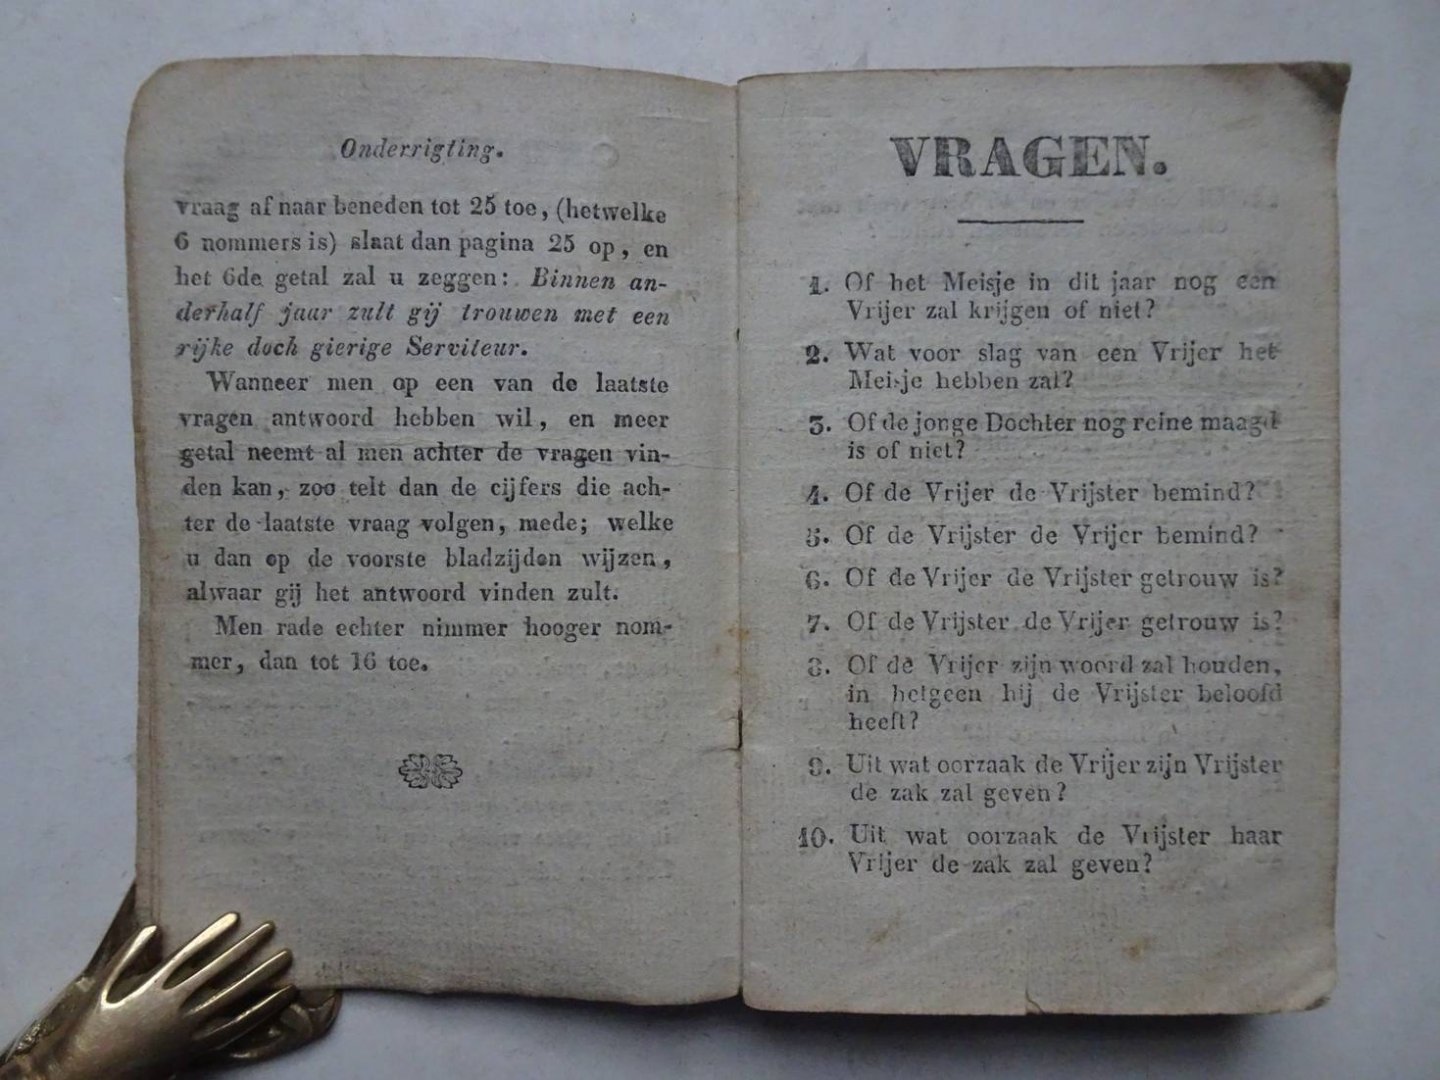 Onderrigting.
vraag af naar beneden tot 25 toe, (hetwelke
6 nommers is) slaat dan pagina 25 op, en
het 6de getal zal u zeggen: Binnen an-
derhalf jaar zult gij trouwen met een
rijke doch gierige Serviteur.
Wanneer men op een van de laatste
vragen antwoord hebben wil, en meer
getal neemt al men achter de vragen vin-
den kan, zoo telt dan de cijfers die ach-
ter de laatste vraag volgen, mede; welke
u dan op de voorste bladzijden wijzen,
alwaar gij het antwoord vinden zult.
Men rade echter nimmer hooger nom-
mer, dan tot 16 toe.
VRAGEN.
1. Of het Meisje in dit jaar nog een
Vrijer zal krijgen of niet?
2. Wat voor slag van een Vrijer het
Meisje hebben zal?
3. Of de jonge Dochter nog reine maagd
is of niet?
4. Of de Vrijer de Vrijster bemind?
5. Of de Vrijster de Vrijer bemind?
6. Of de Vrijer de Vrijster getrouw is?
7. Of de Vrijster de Vrijer getrouw is?
8. Of de Vrijer zijn woord zal houden,
in hetgeen hij de Vrijster beloofd
heeft?
9. Uit wat oorzaak de Vrijer zijn Vrijster
de zak zal geven?
10. Uit wat oorzaak de Vrijster haar
Vrijer de zak zal geven?